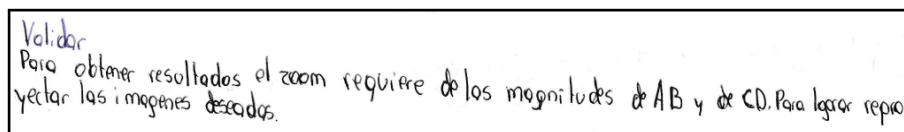 Validar
Para obtener resultados el zoom requiere de las magnitudes de AB y de CD. Para lograr repro
yectar las imagenes deseadas.